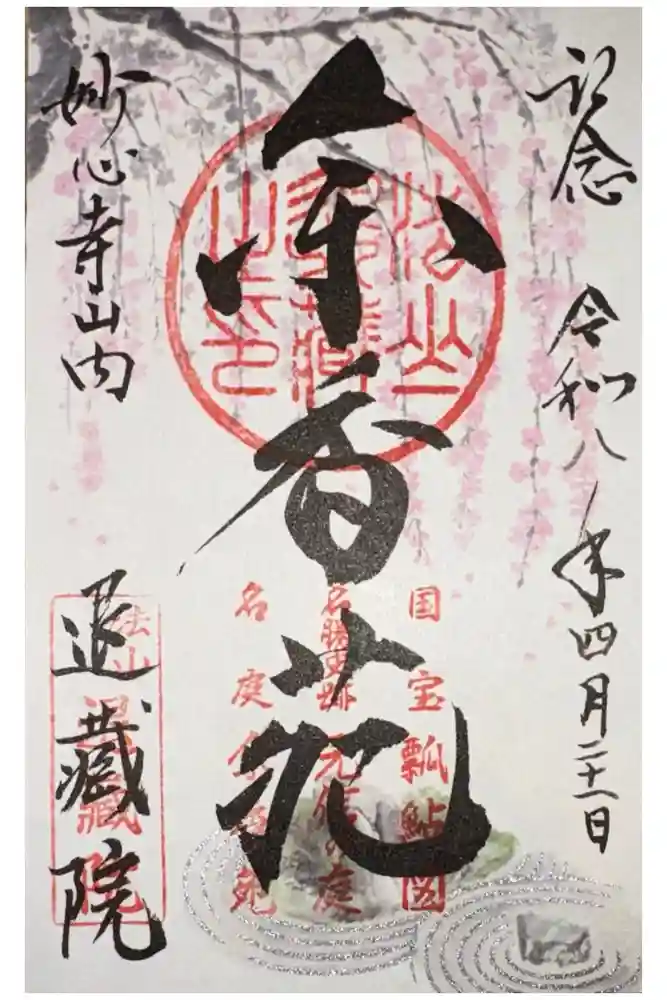 記念 令和八年四月二十一日
余香苑
妙心寺山内
退藏院
国宝瓢鮎図
名勝史跡 元信の庭
名庭余香苑
法山
退藏院